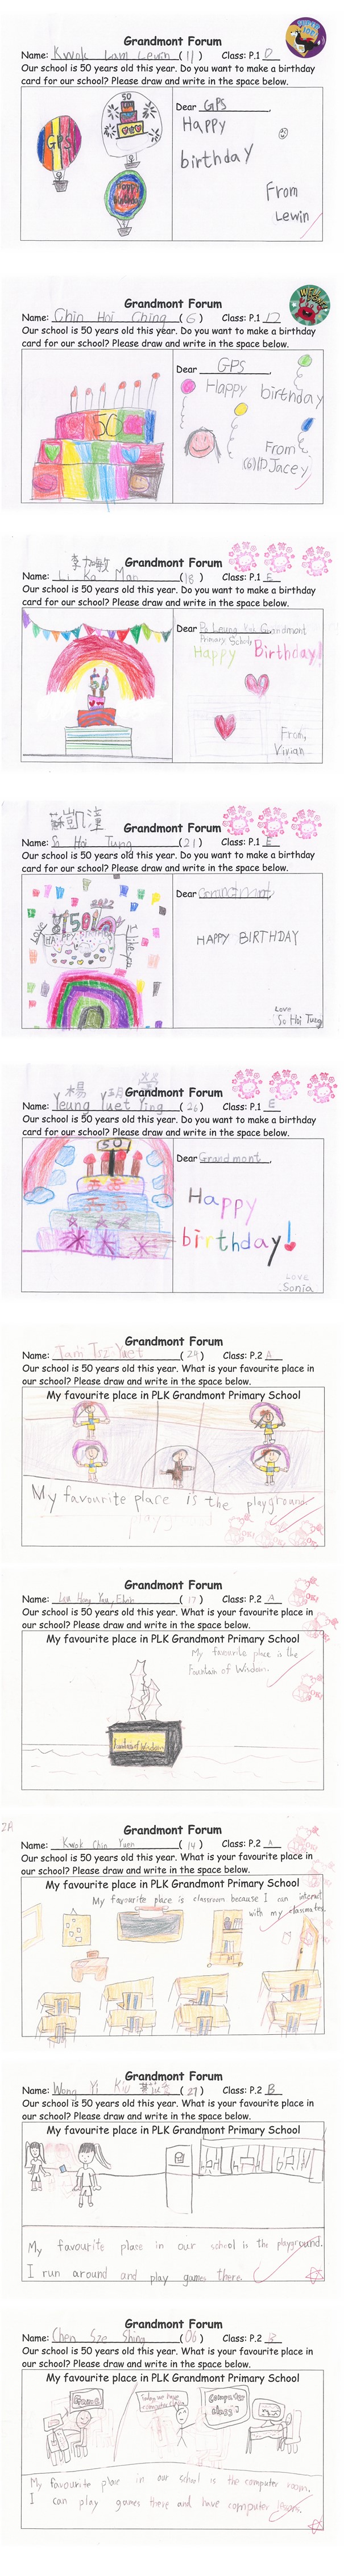 Grandmont Forum
Name: Kwok Lam Lewin (11) Class: P.1 D
Our school is 50 years old this year. Do you want to make a birthday
card for our school? Please draw and write in the space below.
GPS
50
Happy
Dear GPS,
Happy
birthday
From
Lewin
Grandmont Forum
Name: Chin Hoi Ching (6) Class: P.1 D
Our school is 50 years old this year. Do you want to make a birthday
card for our school? Please draw and write in the space below.
50
Dear GPS,
Happy birthday
From
(6)1D Jacey
李加敏
Grandmont Forum
Name: Li Ka Man (18) Class: P.1 E
Our school is 50 years old this year. Do you want to make a birthday
card for our school? Please draw and write in the space below.
50
Dear Po Leung Kuk Grandmont
Primary School,
Happy Birthday!
From,
Vivian
蘇凱潼
Grandmont Forum
Name: So Hoi Tung (21) Class: P.1 E
Our school is 50 years old this year. Do you want to make a birthday
card for our school? Please draw and write in the space below.
50
Dear Grandmont,
HAPPY BIRTHDAY
Love
So Hoi Tung
楊
Grandmont Forum
Name: Yeung Yuet Ying (26) Class: P.1 E
Our school is 50 years old this year. Do you want to make a birthday
card for our school? Please draw and write in the space below.
50
Dear Grandmont,
Happy
birthday!
LOVE
Sonia
Grandmont Forum
Name: Tam Tsz Yuet (24) Class: P.2 A
Our school is 50 years old this year. What is your favourite place in
our school? Please draw and write in the space below.
My favourite place in PLK Grandmont Primary School
My favourite place is the playground.
Grandmont Forum
Name: Hong Yau, (17) Class: P.2 A
Our school is 50 years old this year. What is your favourite place in
our school? Please draw and write in the space below.
My favourite place in PLK Grandmont Primary School
My favourite place is the
Fountain of Wisdom.
Fountain of Wisdom
2A
Grandmont Forum
Name: Kwok Chin Yuen (14) Class: P.2 A
Our school is 50 years old this year. What is your favourite place in
our school? Please draw and write in the space below.
My favourite place in PLK Grandmont Primary School
My favourite place is classroom because I can interact
with my classmates.
Grandmont Forum
Name: Wong Yi Kiu (27) Class: P.2 B
Our school is 50 years old this year. What is your favourite place in
our school? Please draw and write in the space below.
My favourite place in PLK Grandmont Primary School
My favourite place in our school is the playground.
I run around and play games there.
Grandmont Forum
Name: Chen Sze Shing (06) Class: P.2 B
Our school is 50 years old this year. What is your favourite place in
our school? Please draw and write in the space below.
My favourite place in PLK Grandmont Primary School
Game
Today we have
computer
Computer
class
My favourite place in our school is the computer room.
I can play games there and have computer lessons.